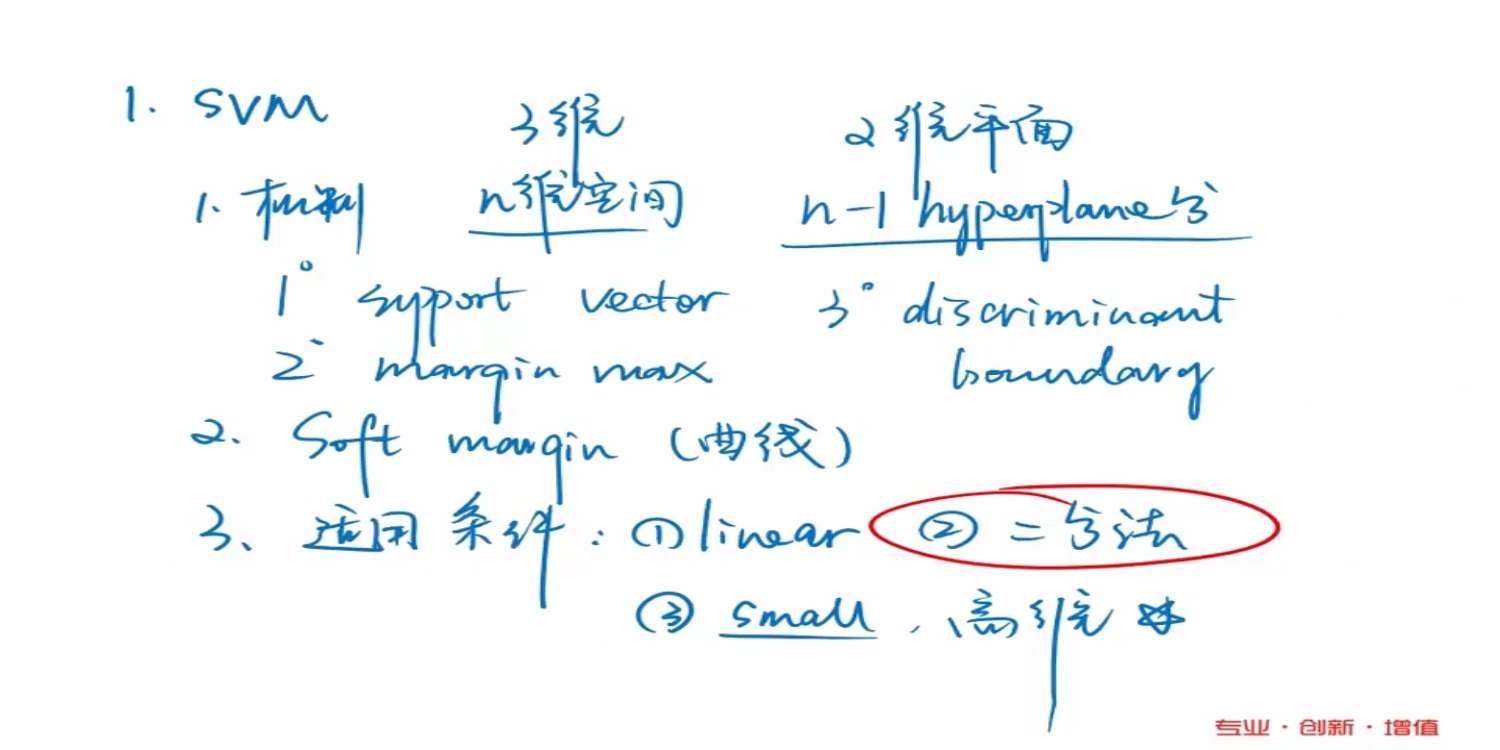 1. SVM
3维 2维平面
1. 机制 n维空间 n-1 hyperplane分
1° support vector 3° discriminant
2° margin max boundary
2. Soft margin (曲线)
3、适用条件: ① linear ② 二分法
③ small、高维
专业·创新·增值